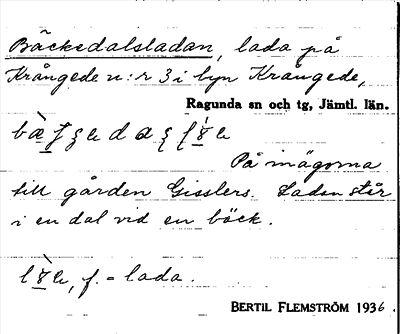 Bäcksdalsladan, lada på
Krångede n:r 3 i byn Krångede,
Ragunda sn och tg, Jämtl. län.
På inägorna
till gården Gisslers. Ladan står
i en dal vid en bäck.
f. = lada.
BERTIL FLEMSTRÖM 1936.